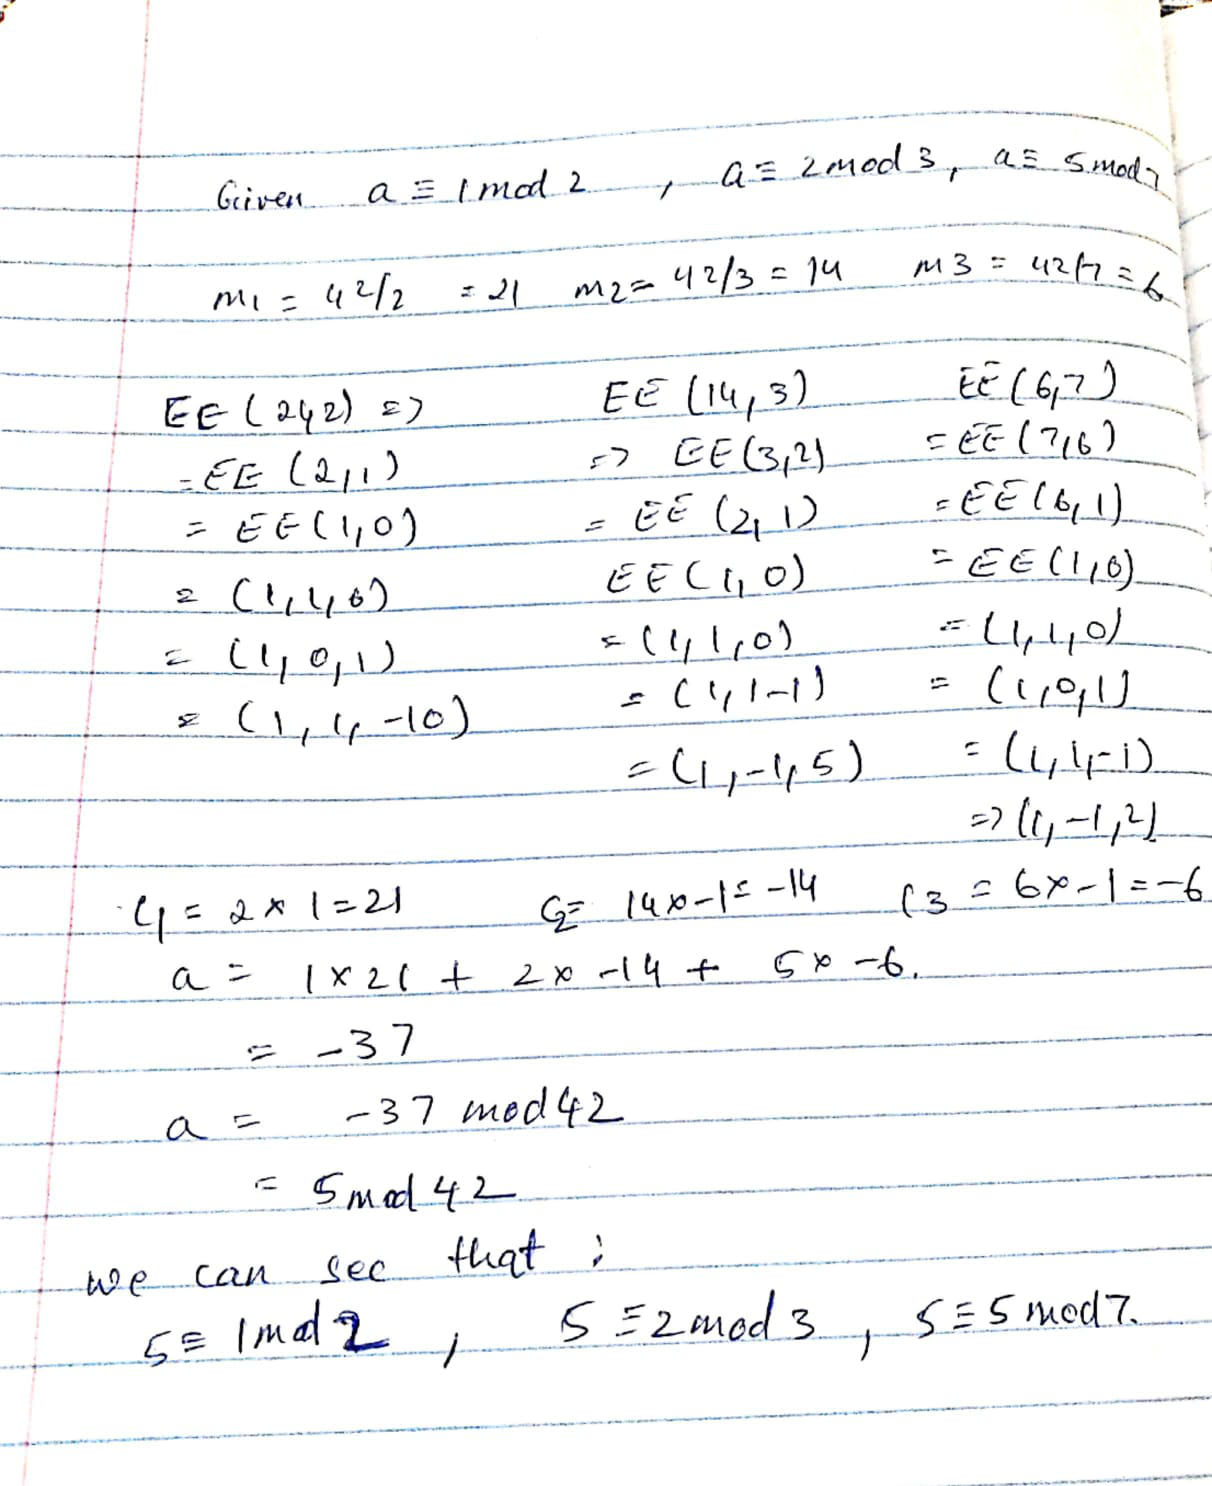 Given a ≡ 1 mod 2 , a ≡ 2 mod 3, a ≡ 5 mod 7
m1 = 42/2 = 21 m2 = 42/3 = 14 m3 = 42/7 = 6
EE (21,2) => EE (14,3) EE (6,7)
= EE (2,1) => EE (3,2) = EE (7,6)
= EE (1,0) = EE (2,1) = EE (6,1)
= (1,1,0) EE (1,0) = EE (1,0)
= (1,0,1) = (1,1,0) = (1,1,0)
= (1,1,-10) = (1,1-1) = (1,0,1)
= (1,-1,5) = (1,1,-1)
=> (1,-1,2)
C1 = 2 x 1 = 21 C2 = 14 x -1 = -14 C3 = 6 x -1 = -6
a = 1 x 21 + 2 x -14 + 5 x -6.
= -37
a = -37 mod 42
= 5 mod 42
we can see that :
5 ≡ 1 mod 2 , 5 ≡ 2 mod 3 , 5 ≡ 5 mod 7.